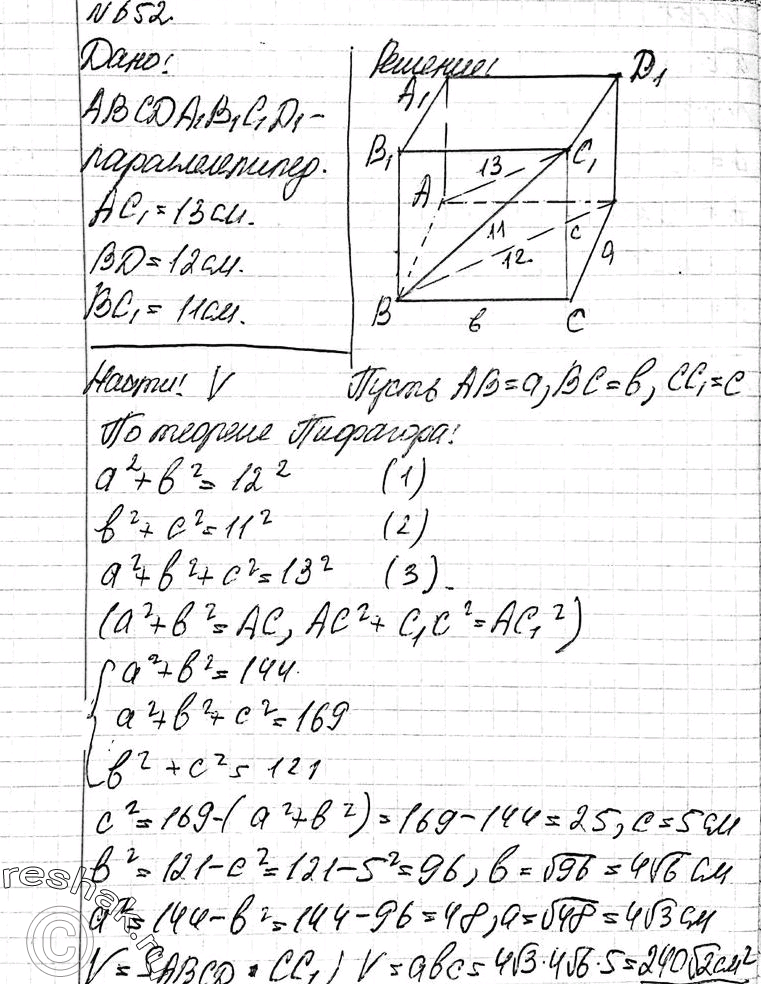 N 652.
Дано:
Решение:
ABCDA₁B₁C₁D₁ –
параллелепипед.
AC₁ = 13 см.
BD = 12 см.
BC₁ = 11 см.
A₁ D₁
B₁ C₁
13
A
11 c
12. a
B в C
Найти: V
Пусть AB = a, BC = в, CC₁ = c
По теореме Пифагора:
a² + в² = 12² (1)
в² + c² = 11² (2)
a² + в² + c² = 13² (3).
(a² + в² = AC, AC² + C₁C² = AC₁²)
a² + в² = 144.
a² + в² + c² = 169
в² + c² = 121
c² = 169 - (a² + в²) = 169 - 144 = 25, c = 5 см
в² = 121 - c² = 121 - 5² = 96, в = √96 = 4√6 см
a² = 144 - в² = 144 - 96 = 48, a = √48 = 4√3 см
V = SABCD · CC₁, V = aвc = 4√3 · 4√6 · 5 = 240√2 см²
reshak.ru
©